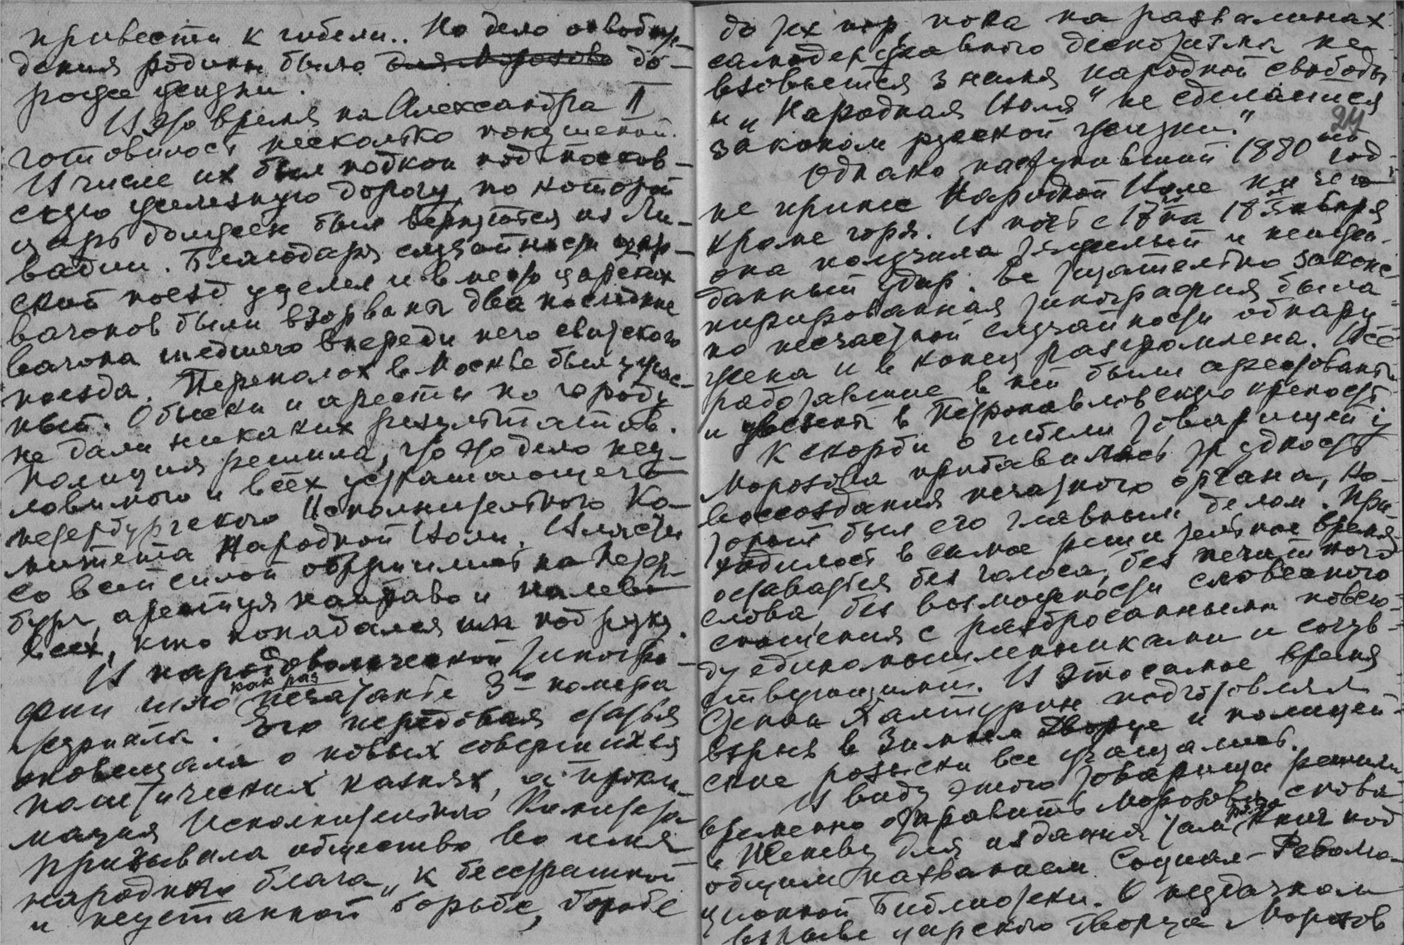 привести к гибели.. Но дело освобож-
дения родины было для Морозова до-
роже жизни.
В это время на Александра II
готовилось несколько покушений.
В числе их был подкоп под Москов-
скую железную дорогу, по которой
царь должен был вернуться из Ли-
вадии. Благодаря случайности цар-
ский поезд уцелел и вместо царских
вагонов были взорваны два последние
вагона шедшего впереди него свитского
поезда. Переполох в Москве был ужас-
ный. Обыски и аресты по городу
не дали никаких результатов.
Полиция решила, что это дело неу-
ловимого и всех устрашающего
петербургского Исполнительного Ко-
митета Народной Воли. Власти
со всей силой обрушились на Петер-
бург арестуя направо и налево
всех, кто попадался им под руку.
В народовольческой типогра-
фии шло как раз печатанье 3го номера
журнала. Его передовая статья
оповещала о новых совершихся
политических казнях, а прокла-
мация Исполнительного Комитета
призывала общество во имя
народного блага „к бесстрашной
и неустанной борьбе, борьбе
24
до тех пор, пока на развалинах
самодержавного деспотизма не
взовьется знамя народной свободы
и „Народная Воля" не сделается
законом русской жизни."
Однако наступивший 1880ый год
не принес Народной Воле ничего
кроме горя. В ночь с 17го на 18ое января
она получила тяжелый и неожи-
данный удар. Ее тщательно законс-
пирированная типография была
по несчастной случайности обнару-
жена и в конец разгромлена. Все
работавшие в ней были арестованы
и увезены в Петропавловскую крепость.
К скорби о гибели товарищей у
Морозова прибавилась трудность
воссоздания печатного органа, ко-
торый был его главным делом. При-
ходилось в самое решительное время
оставаться без голоса, без печатного
слова, без возможности словесного
сношения с разбросанными повсю-
ду единомышленниками и сочув-
ствующими. В это самое время
Степан Халтурин подготовлял
взрыв в Зимнем Дворце и полицей-
ские розыски все учащались.
В виду этого товарищи решили
временно отправить Морозова снова
в Женеву для издания там ряда книг под
общим названием Социал-Револю-
ционной Библиотеки. О неудачном
взрыве царского дворца Морозов